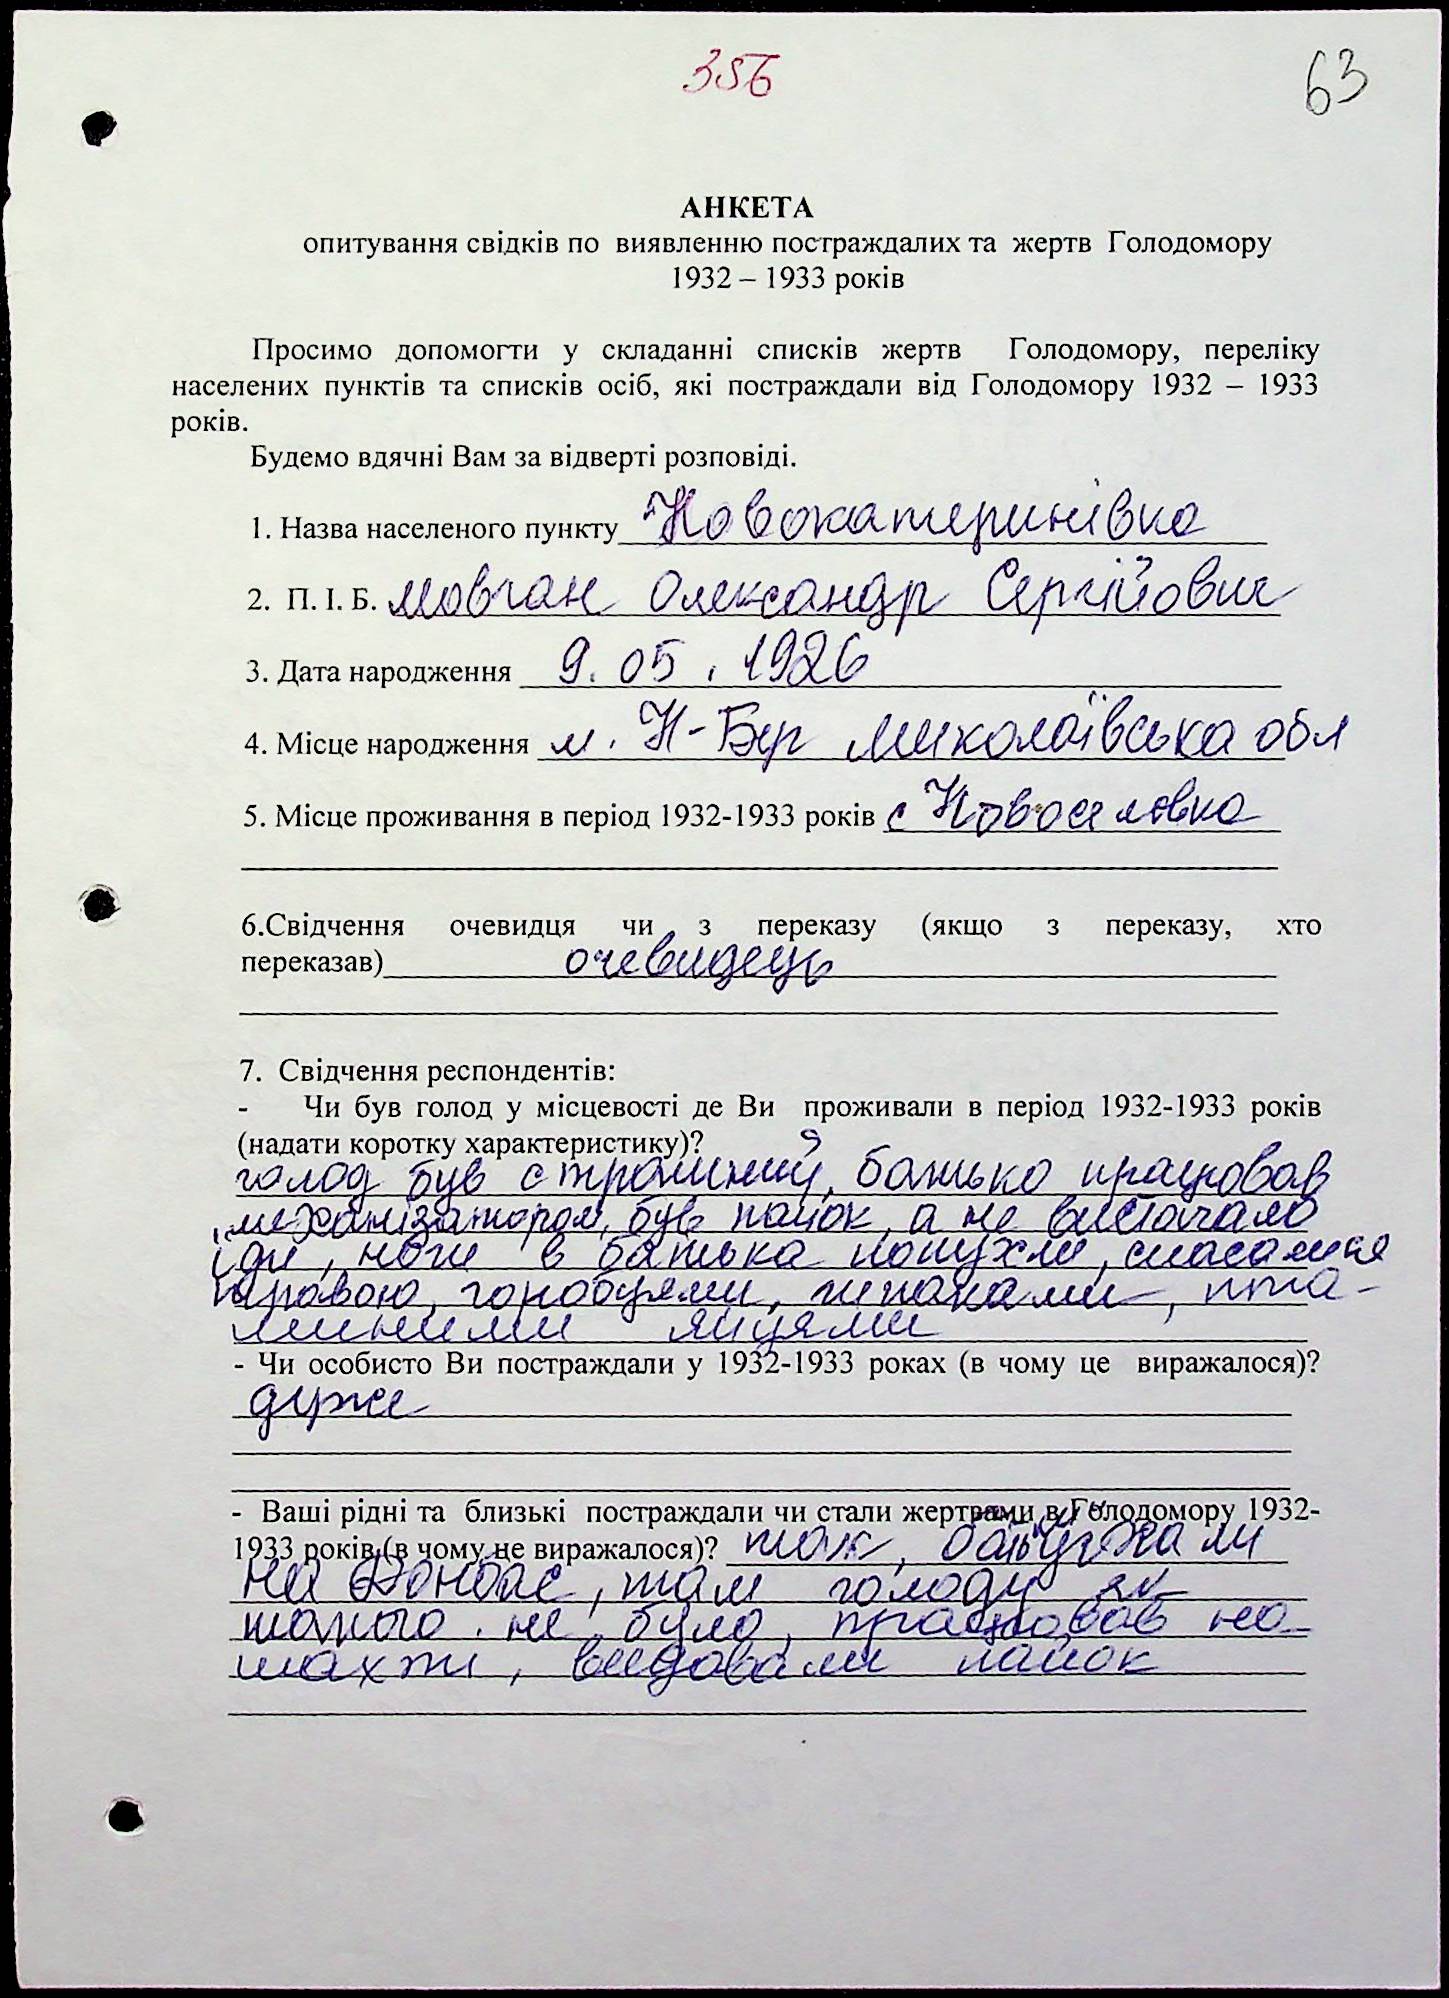 356
63
АНКЕТА
опитування свідків по виявленню постраждалих та жертв Голодомору
1932 – 1933 років
Просимо допомогти у складанні списків жертв Голодомору, переліку
населених пунктів та списків осіб, які постраждали від Голодомору 1932 – 1933
років.
Будемо вдячні Вам за відверті розповіді.
1. Назва населеного пункту Новокатеринівка
2. П. І. Б. Мовчан Олександр Сергійович
3. Дата народження 9.05.1926
4. Місце народження м. Н-Буг Миколаївська обл
5. Місце проживання в період 1932-1933 років с Новоселовка
6.Свідчення очевидця чи з переказу (якщо з переказу, хто
переказав) очевидець
7. Свідчення респондентів:
- Чи був голод у місцевості де Ви проживали в період 1932-1933 років
(надати коротку характеристику)?
голод був страшний, батько працював
механізатором, був пайок, а не вистачало
їди, ноги в батька попухли, спасалися
травою, горобцями, чипаками, пта-
шиними яйцями
- Чи особисто Ви постраждали у 1932-1933 роках (в чому це виражалося)?
дуже
- Ваші рідні та близькі постраждали чи стали жертвами в Голодомору 1932-
1933 років (в чому це виражалося)? так,
на Донбас, там голоду як
такого не було, працював на
шахті, видавали пайок